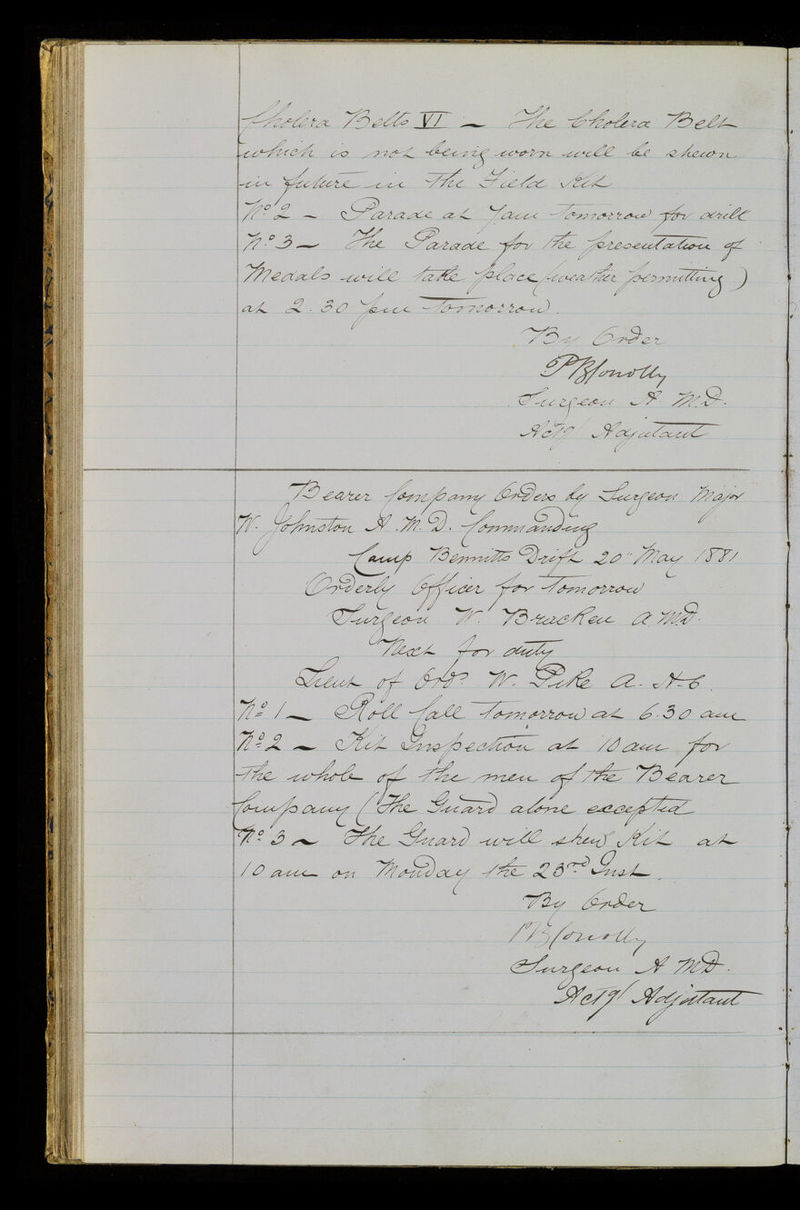 Cholera Belts VI — The Cholera Belt
which is not being worn will be shewn
in future in the Field Kit
No 2 — Parade at 7am tomorrow for drill
No 3 — The Parade for the presentation of
Medals will take place (weather permitting)
at 2.30 pm tomorrow.
By Order
PBConolly
Surgeon A M.D.
Actg/ Adjutant
Bearer Company Orders by Surgeon Major
W. Johnston A.M.D. Commanding
Camp Bennitts Drift 20" May 1881
Orderly Officer for tomorrow
Surgeon W. Bracken A MD.
Next for duty
Lieut of Ord. W. Pike A. H-C.
No 1 — Roll Call tomorrow at 6.30 am
No 2 — Kit Inspection at 10 am for
the whole of the men of the Bearer
Company (The Guard alone excepted
No 3 — The Guard will shew Kit at
10 am on Monday the 23rd Inst.
By Order
PBConolly
Surgeon A MD.
Actg/ Adjutant